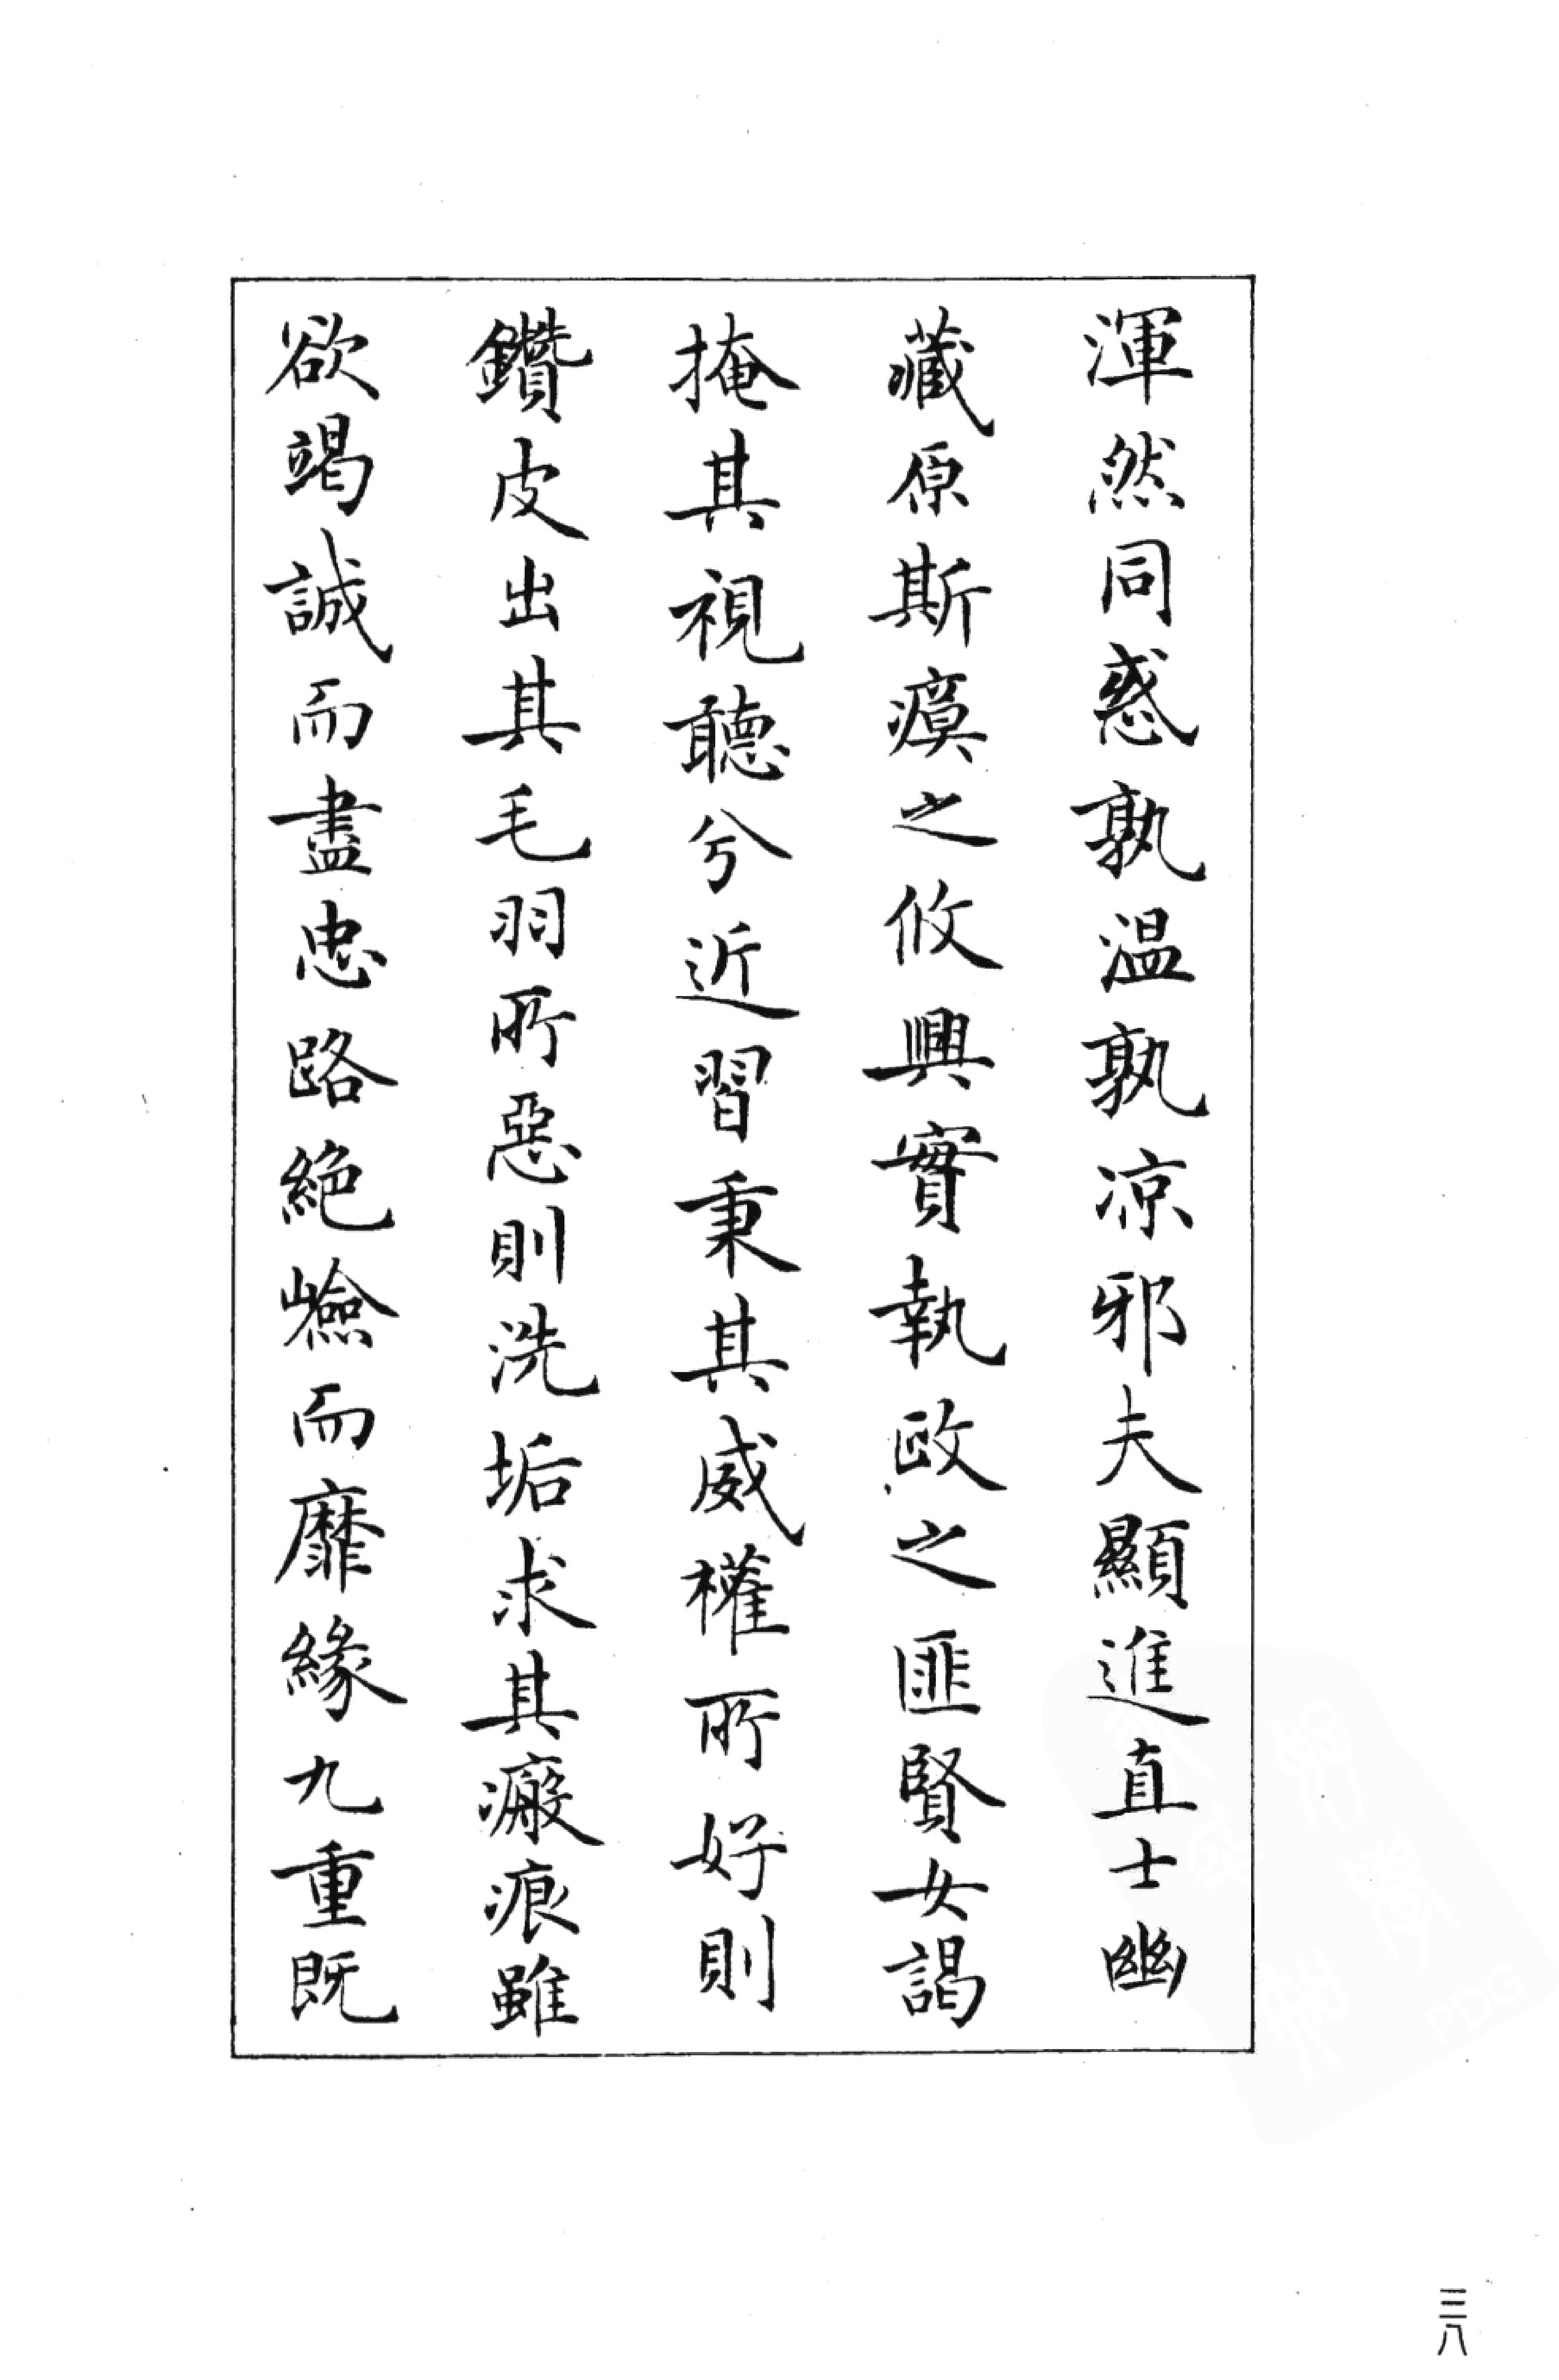 渾然同惑孰温孰凉邪夫顯進直士幽
藏原斯瘼之攸興實執政之匪賢女謁
掩其視聽兮近習秉其威權所好則
鑽皮出其毛羽所惡則洗垢求其瘢痕雖
欲竭誠而盡忠路絶嶮而靡緣九重既
三八